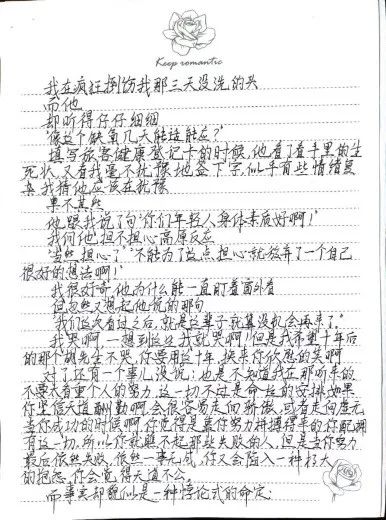 Keep romantic
我在疯狂捯饬我那三天没洗的头
而他
却听得仔仔细细
"像这个缺氧几天能适应?"
填写旅客健康登记卡的时候,他看了看手里的生
死状,又看我毫不犹豫地签下字,似乎有些情绪复
杂,我猜他应该在犹豫
果不其然
他跟我说了句"你们年轻人身体素质好啊!"
我问他"担不担心高原反应
"当然担心了""不能为了这点担心就放弃了一个自己
很好的想法啊!"
我很好奇他为什么能一直盯着窗外看
但忽然又想起他说的那句
"我们这次看过之后,就是这辈子就算没机会再来了."
我哭啊,一想到这些我就哭啊!但是我希望十年后
的那个胡先生不哭,你要用这十年,换来你欣慰的笑啊
对了还有一个事儿没说:也是不知道我在那听来的
不要太看重个人的努力,这一切不过是命运的安排,如果
你坚信天道酬勤啊,会很容易走向骄傲,或者走向虚无
当你成功的时候啊,你觉得是靠你努力拼搏得来的,你配拥
有这一切,所以你就瞧不起那些失败的人,但是当你努力
最后依然失败,依然一事无成,你又会陷入一种极大
的抱怨,你会觉得天道不公
而事实却貌似是一种悖论式的命定: